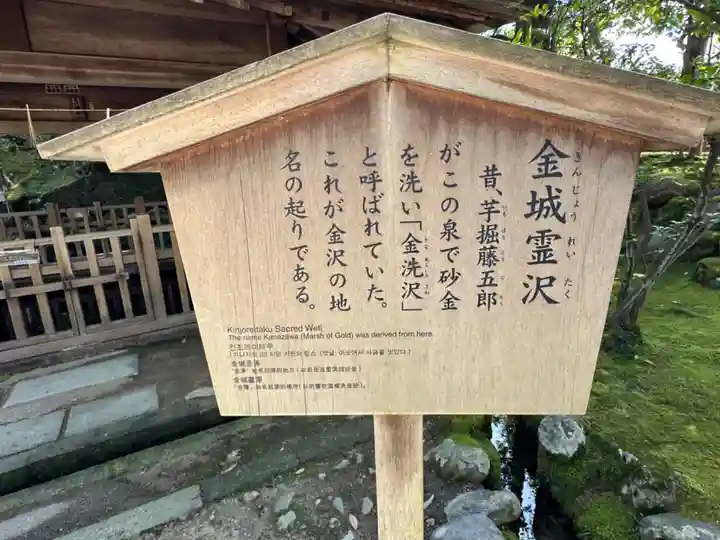 金城霊沢
きんじょうれいたく
昔、芋掘藤五郎
がこの泉で砂金
を洗い「金洗沢」
と呼ばれていた。
これが金沢の地
名の起りである。
Kinjoreitaku Sacred Well
The name Kanazawa (Marsh of Gold) was derived from here.
킨조레이타쿠
金城灵泽
金城靈澤